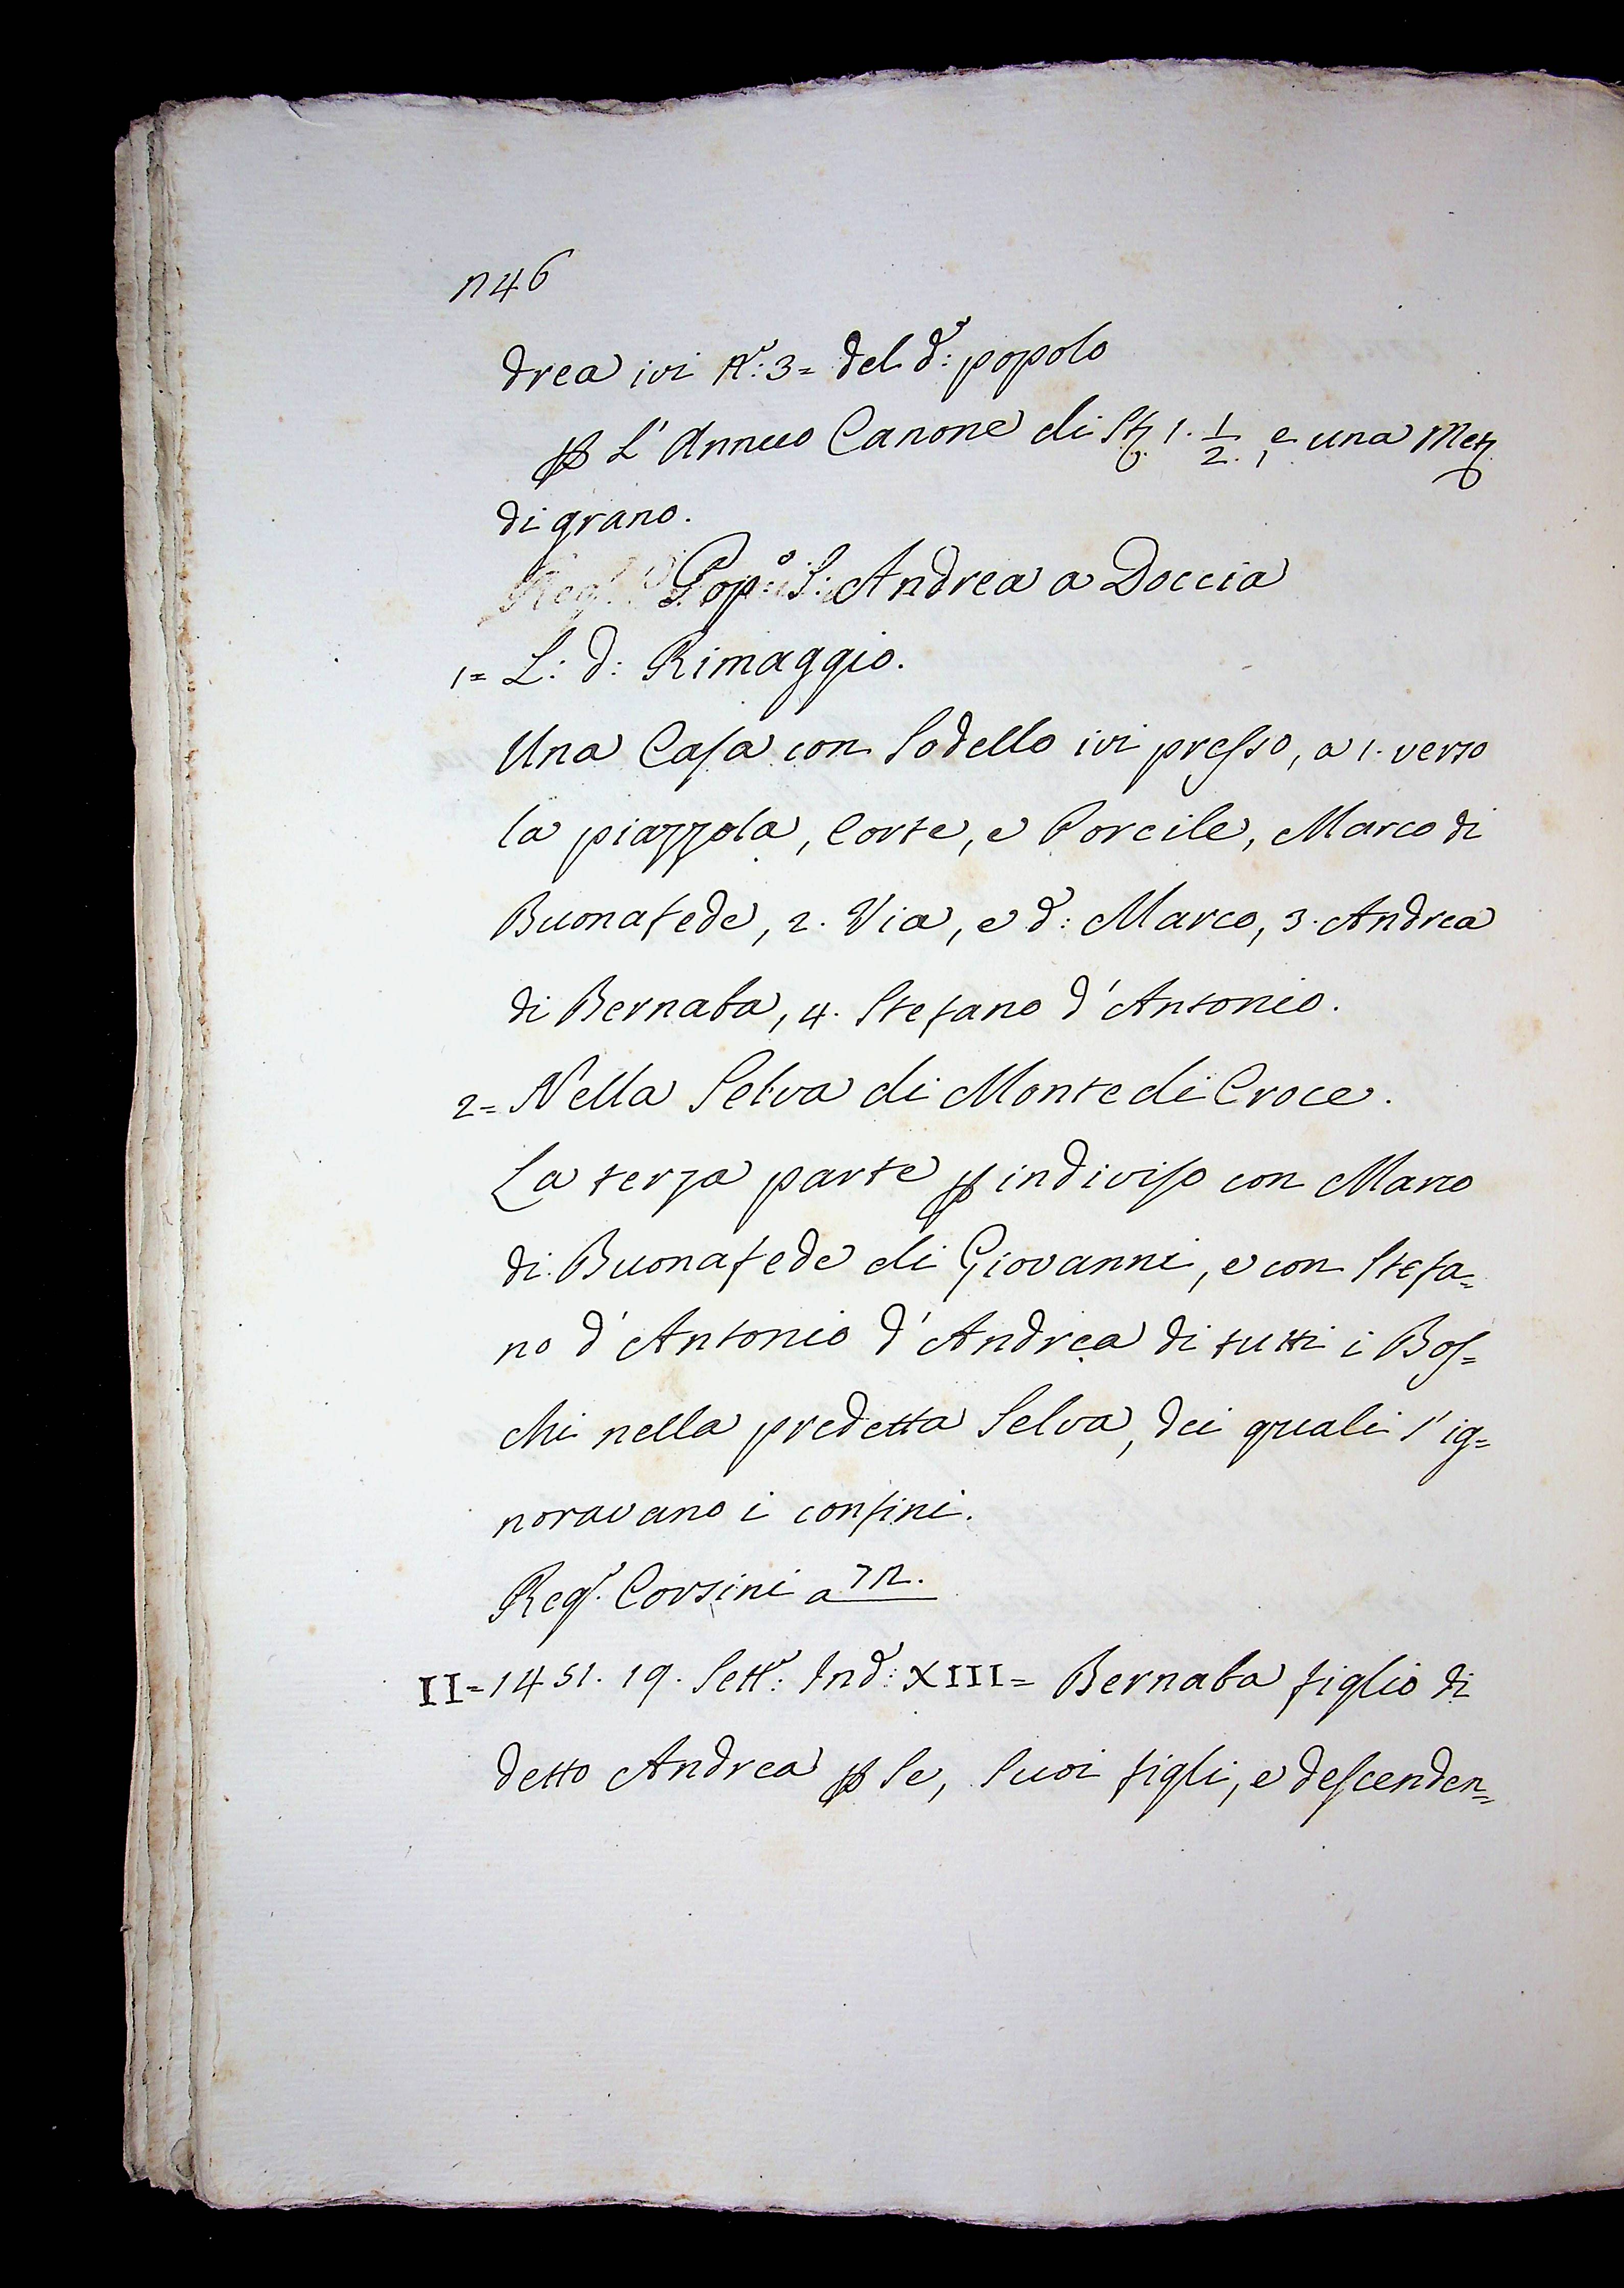 n 46
drea ivi N.º: 3= del d.º: popolo
p L' Annuo Canone di St. 1. 1/2., e una Mez.
di grano.
Pop.º: S: Andrea a Doccia
1= L: d: Rimaggio.
Una Casa con Sodello ivi presso, a 1. verso
la piazzola, Corte, e Porcile, Marco di
Buonafede, 2. Via, e d: Marco, 3. Andrea
di Bernaba, 4. Stefano d' Antonio.
2= Nella Selva di Monte di Croce.
La terza parte p indiviso con Marco
di Buonafede di Giovanni, e con Stefa=
no d' Antonio d' Andrea di tutti i Bos=
chi nella predetta Selva, dei quali s' ig=
noravano i confini.
Rog.º Corsini a
II= 1451. 19. Sett.º: Ind.º: XIII= Bernaba figlio di
detto Andrea p Se, Suoi figli, e descenden=